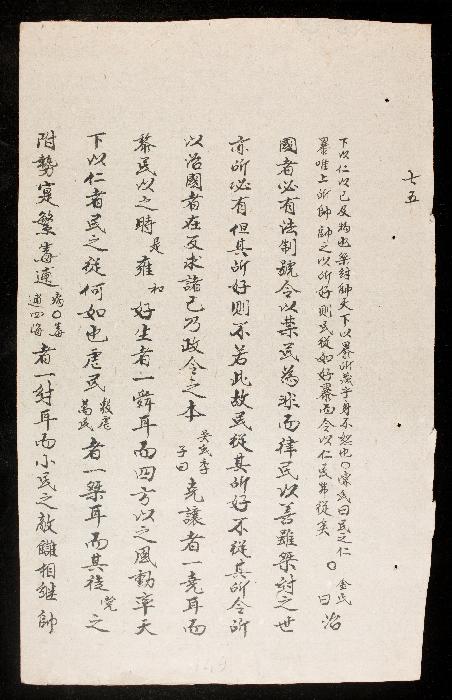 七五
下以仁以己及物也桀紂帥天下以暴所藏乎身不恕也○蒙氏曰民之仁
暴唯上所帥帥之以所好則民從如好暴而令以仁民弗從矣 ○ 金氏曰治
國者必有法制號令以禁民為非而律民以善雖桀紂之世
亦所必有但其所好則不若此故民從其所好不從其所令所
以治國者在反求諸己乃政令之本 吳氏季子曰 堯讓者一堯耳而
黎民以之時是雍和好生者一舜耳而四方以之風動率天
下以仁者民之從何如也虐民敎虐萬民者一桀耳而其從覺之
附勢寔繁毒逋痡○毒逋四海者一紂耳而小民之敵讎相繼帥